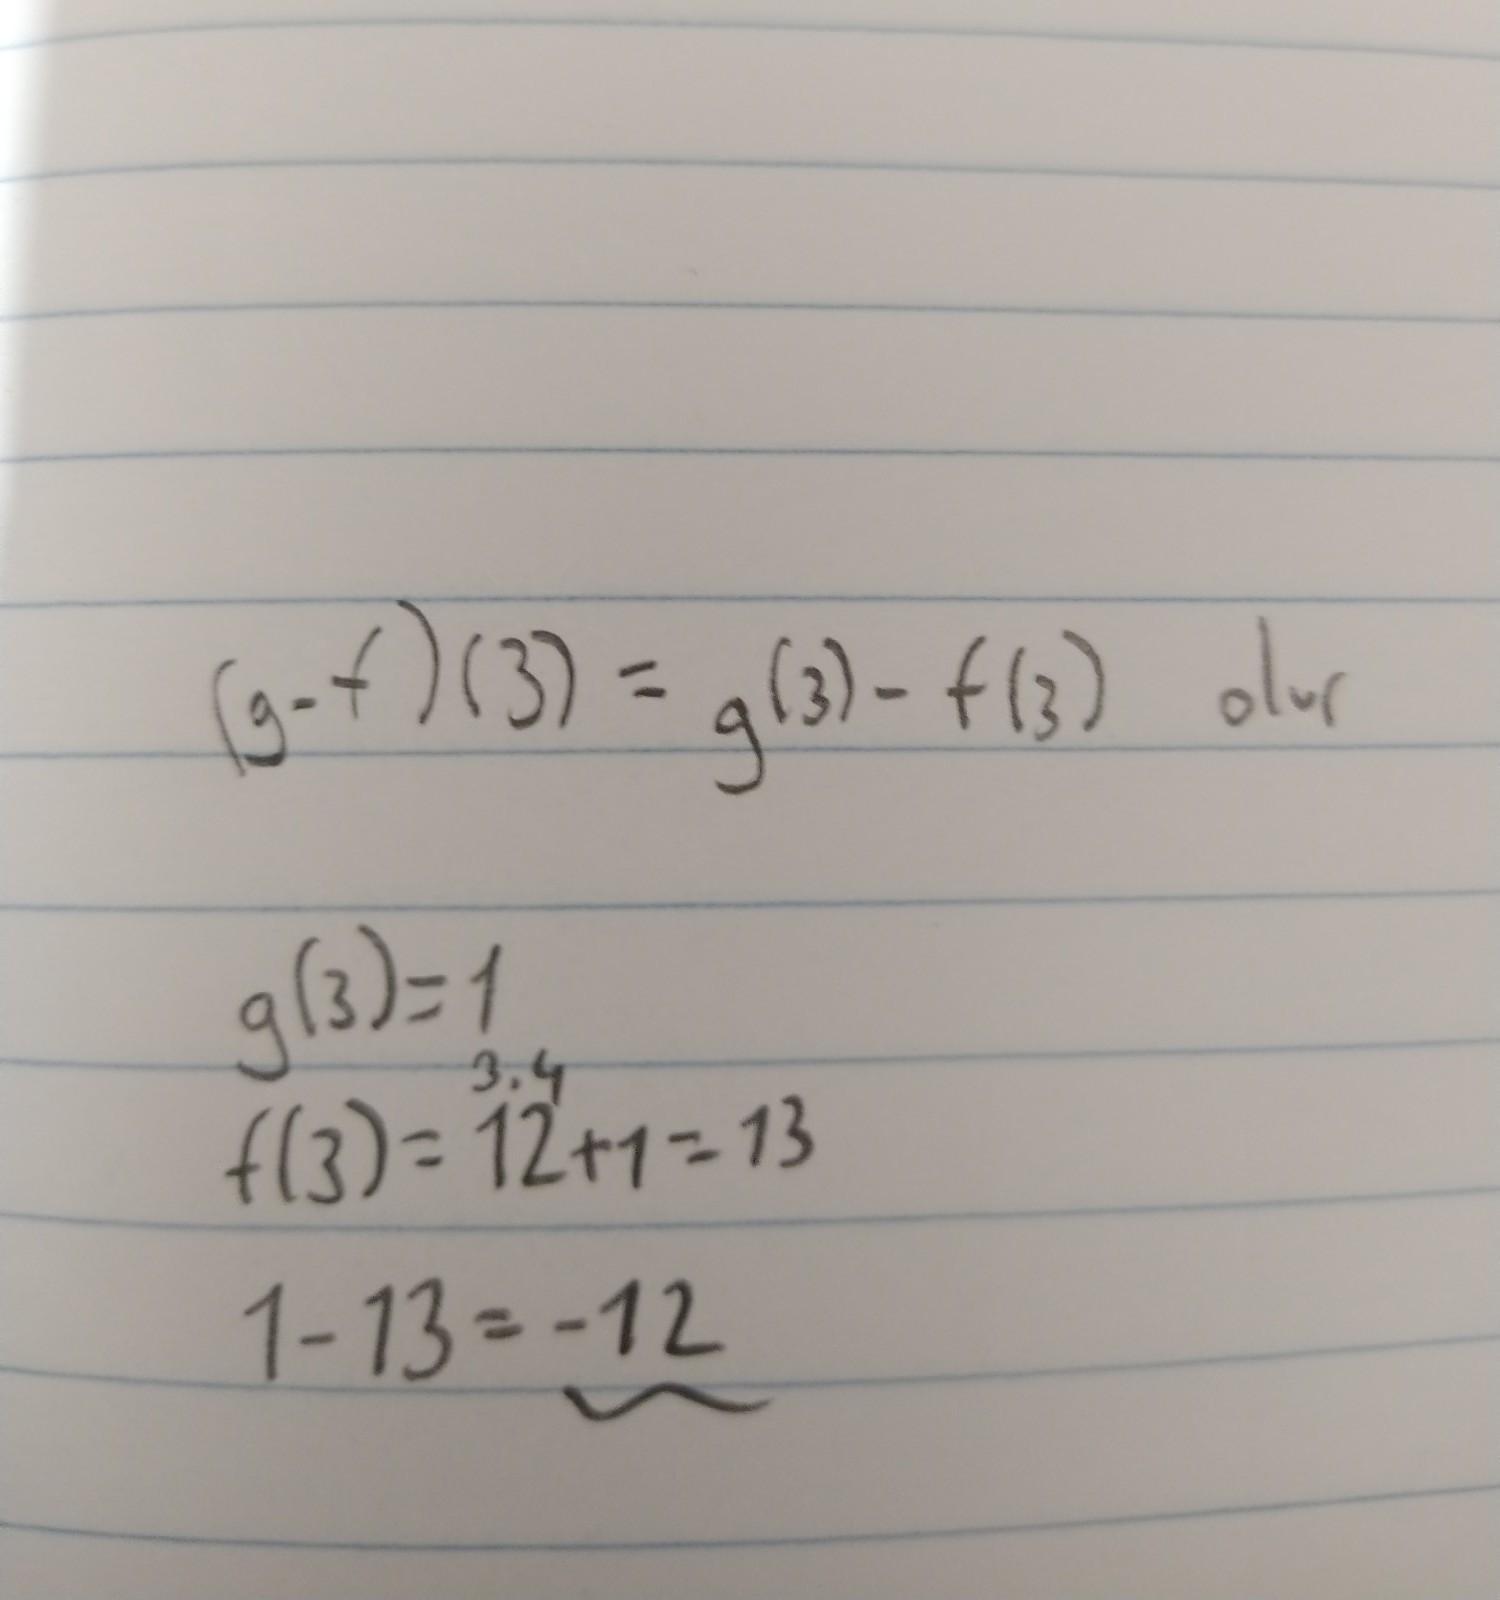 (g-f)(3) = g(3) - f(3) olur
g(3)=1
3.4
f(3)=12+1=13
1-13=-12